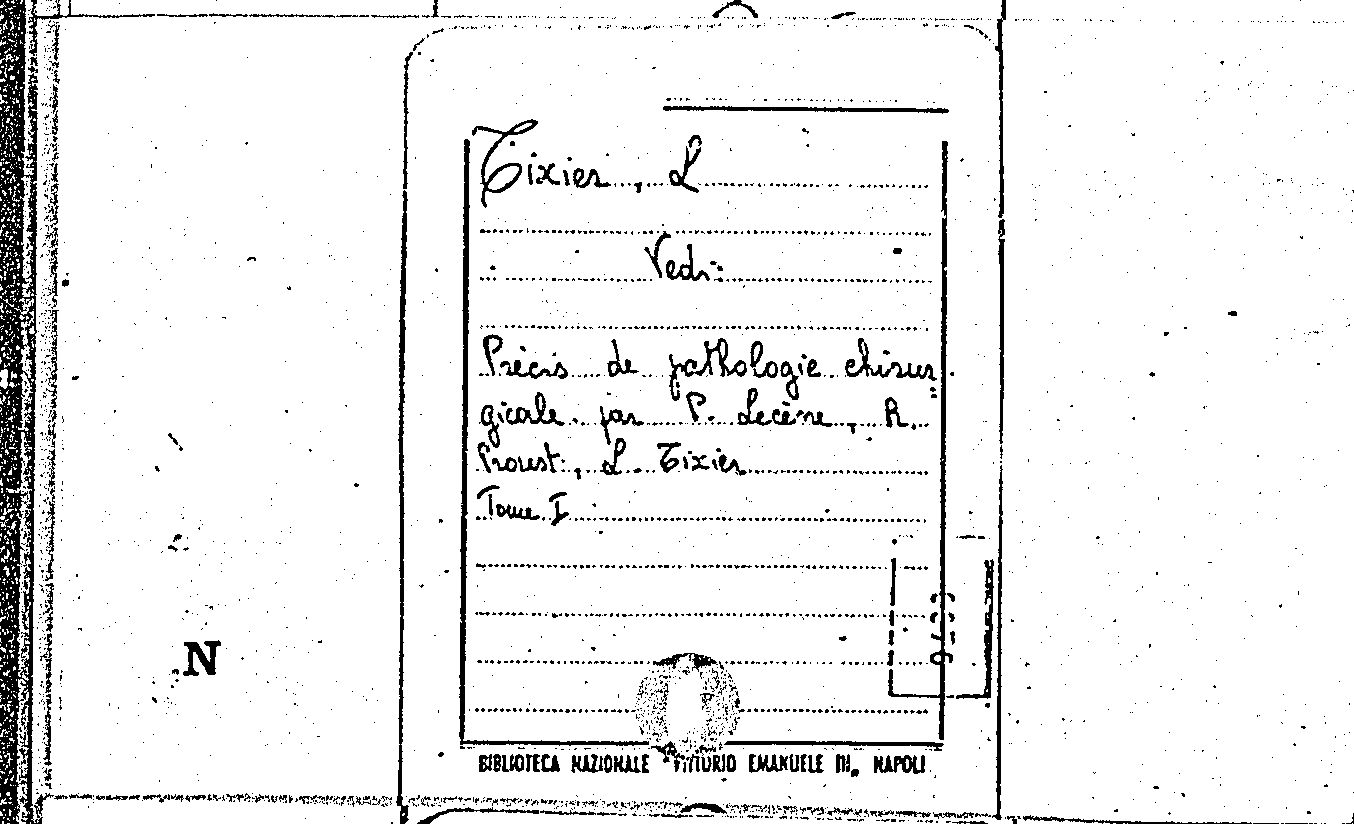 Tixier, L
Vedi:
Précis de pathologie chirur
gicale par P. Lecène, R.
Proust, L. Tixier
Tome I
N
BIBLIOTECA NAZIONALE "VITTORIO EMANUELE III„ NAPOLI